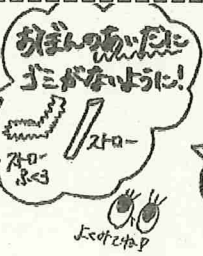 おぼんのあいだに
ゴミがないように!
ストロー
ストロー
ふくろ
よくみてね!